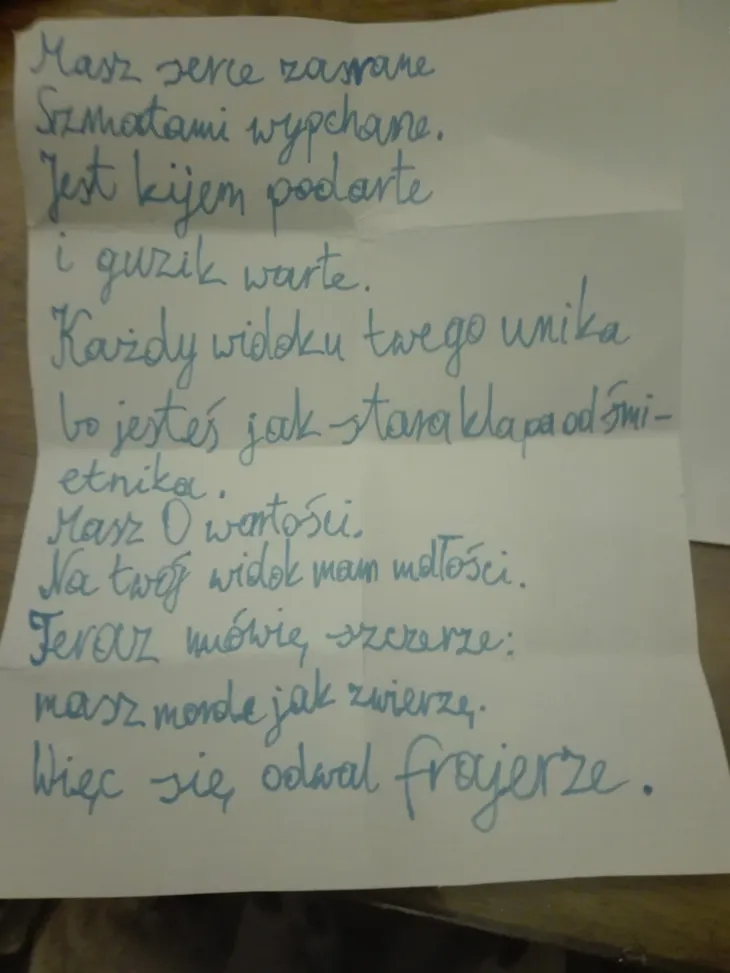 Masz serce zasrane
Szmatami wypchane.
Jest kijem podarte
i guzik warte.
Każdy widoku twego unika
bo jesteś jak stara klapa od śmi-
etnika.
Masz 0 wartości.
Na twój widok mam mdłości.
Teraz mówię szczerze:
masz morde jak zwierzę.
Więc się odwal frajerze.